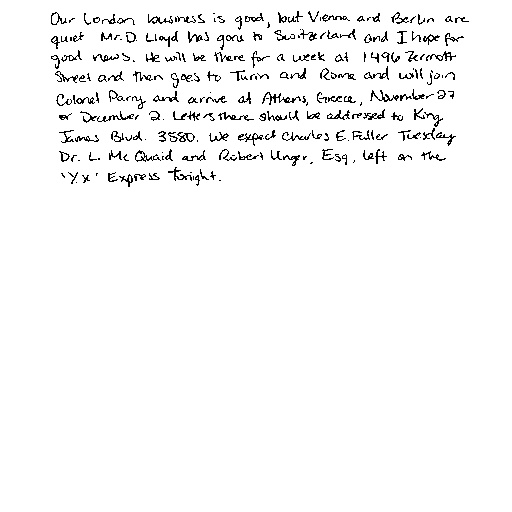 Our London business is good, but Vienna and Berlin are
quiet Mr. D. Lloyd has gone to Switzerland and I hope for
good news. He will be there for a week at 1496 Zermott
Street and then goes to Turin and Rome and will join
Colonel Parry and arrive at Athens, Greece, November 27
or December 2. Letters there should be addressed to King
James Blvd. 3580. We expect Charles E. Fuller Tuesday
Dr. L. McQuaid and Robert Unger, Esq., left on the
'Y.x' Express tonight.